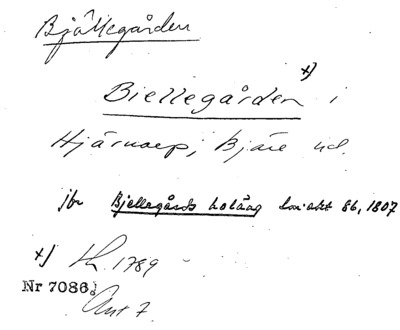 Bjällegården
Biellegården x) i
Hjärnarp, Bjäre hd.
jbr Bjellegårds holäng Lm:akt 86, 1807
x) Lk. 1789
Nr 7086;
Ant 7